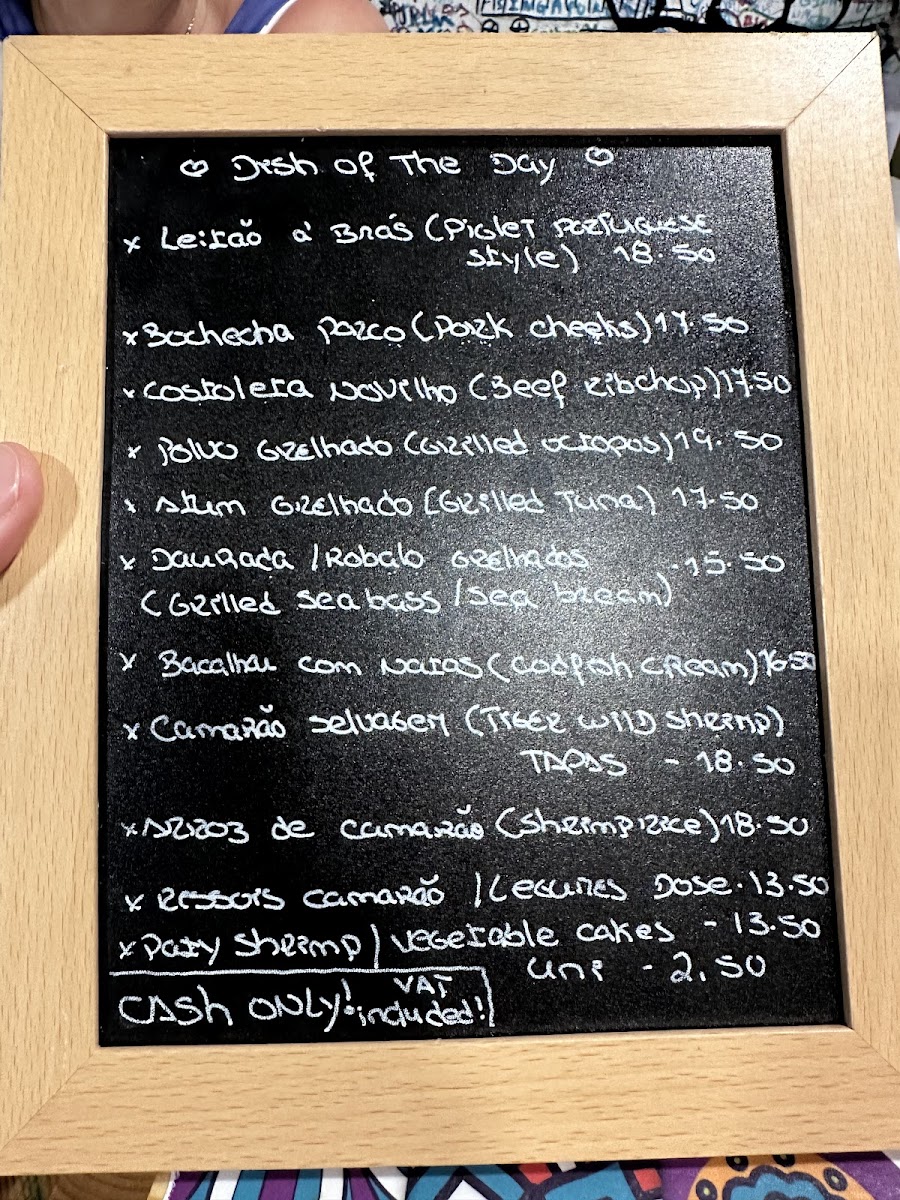 Dish of The Day
x Leitão á Brás (Piglet Portuguese
style) 18.50
x Bochecha Porco (Pork cheeks) 17.50
x Costoleta Novilho (Beef Ribchop) 17.50
x Polvo Grelhado (Grilled octopos) 19.50
x Atum Grelhado (Grilled Tuna) 17.50
x Daurada / Robalo Grelhados - 15.50
(Grilled sea bass / sea bream)
x Bacalhau com Natas (Codfish cream) 16.50
x Camarão Selvagem (Tiger wild shrimp)
TAPAS - 18.50
x Arroz de camarão (Shrimp rice) 18.50
x Rissois camarão / Legumes Dose. 13.50
x Paty shrimp / vegetable cakes - 13.50
uni - 2,50
CASH ONLY! VAT
included!